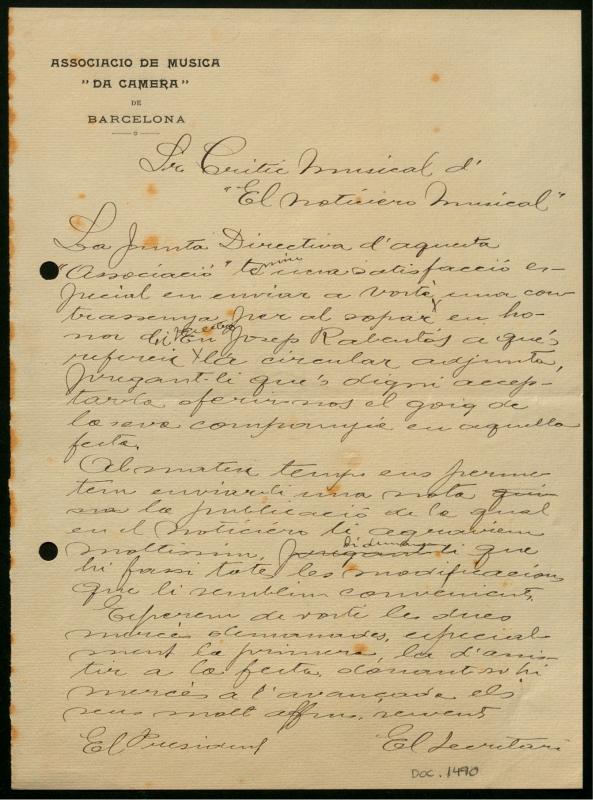 ASSOCIACIO DE MUSICA
"DA CAMERA"
DE
BARCELONA
Sr. Critic Musical d'
"El noticiero Musical"
La Junta Directiva d'aquesta
"Associació" te una satisfacció es-
pecial en enviar a vosté una con-
trassenya per al sopar en ho-
nor d'En Josep Rabentós a qué's
refereix la circular adjunta,
pregant-li qué's digni accep-
tarla oferir-nos el goig de
la seva companyia en aquella
festa.
Al mateix temps ens perme-
tem enviar-li una nota
la publicació de la qual
en el noticiero li agrairiem
moltissim, pregant-li que
hi fassi totes les modificacions
que li semblin convenients.
Esperem de vosté les dues
mercés demanades, especial-
ment la primera, la d'assis-
tir a la festa, donant-n'hi
mercés a l'avançada els
seus molt affms. servents
El President El Secretari
DOC. 1490